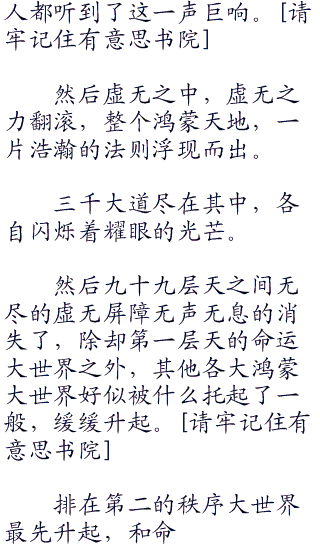 人都听到了这一声巨响。[请
牢记住有意思书院]
然后虚无之中，虚无之
力翻滚，整个鸿蒙天地，一
片浩瀚的法则浮现而出。
三千大道尽在其中，各
自闪烁着耀眼的光芒。
然后九十九层天之间无
尽的虚无屏障无声无息的消
失了，除却第一层天的命运
大世界之外，其他各大鸿蒙
大世界好似被什么托起了一
般，缓缓升起。[请牢记住有
意思书院]
排在第二的秩序大世界
最先升起，和命